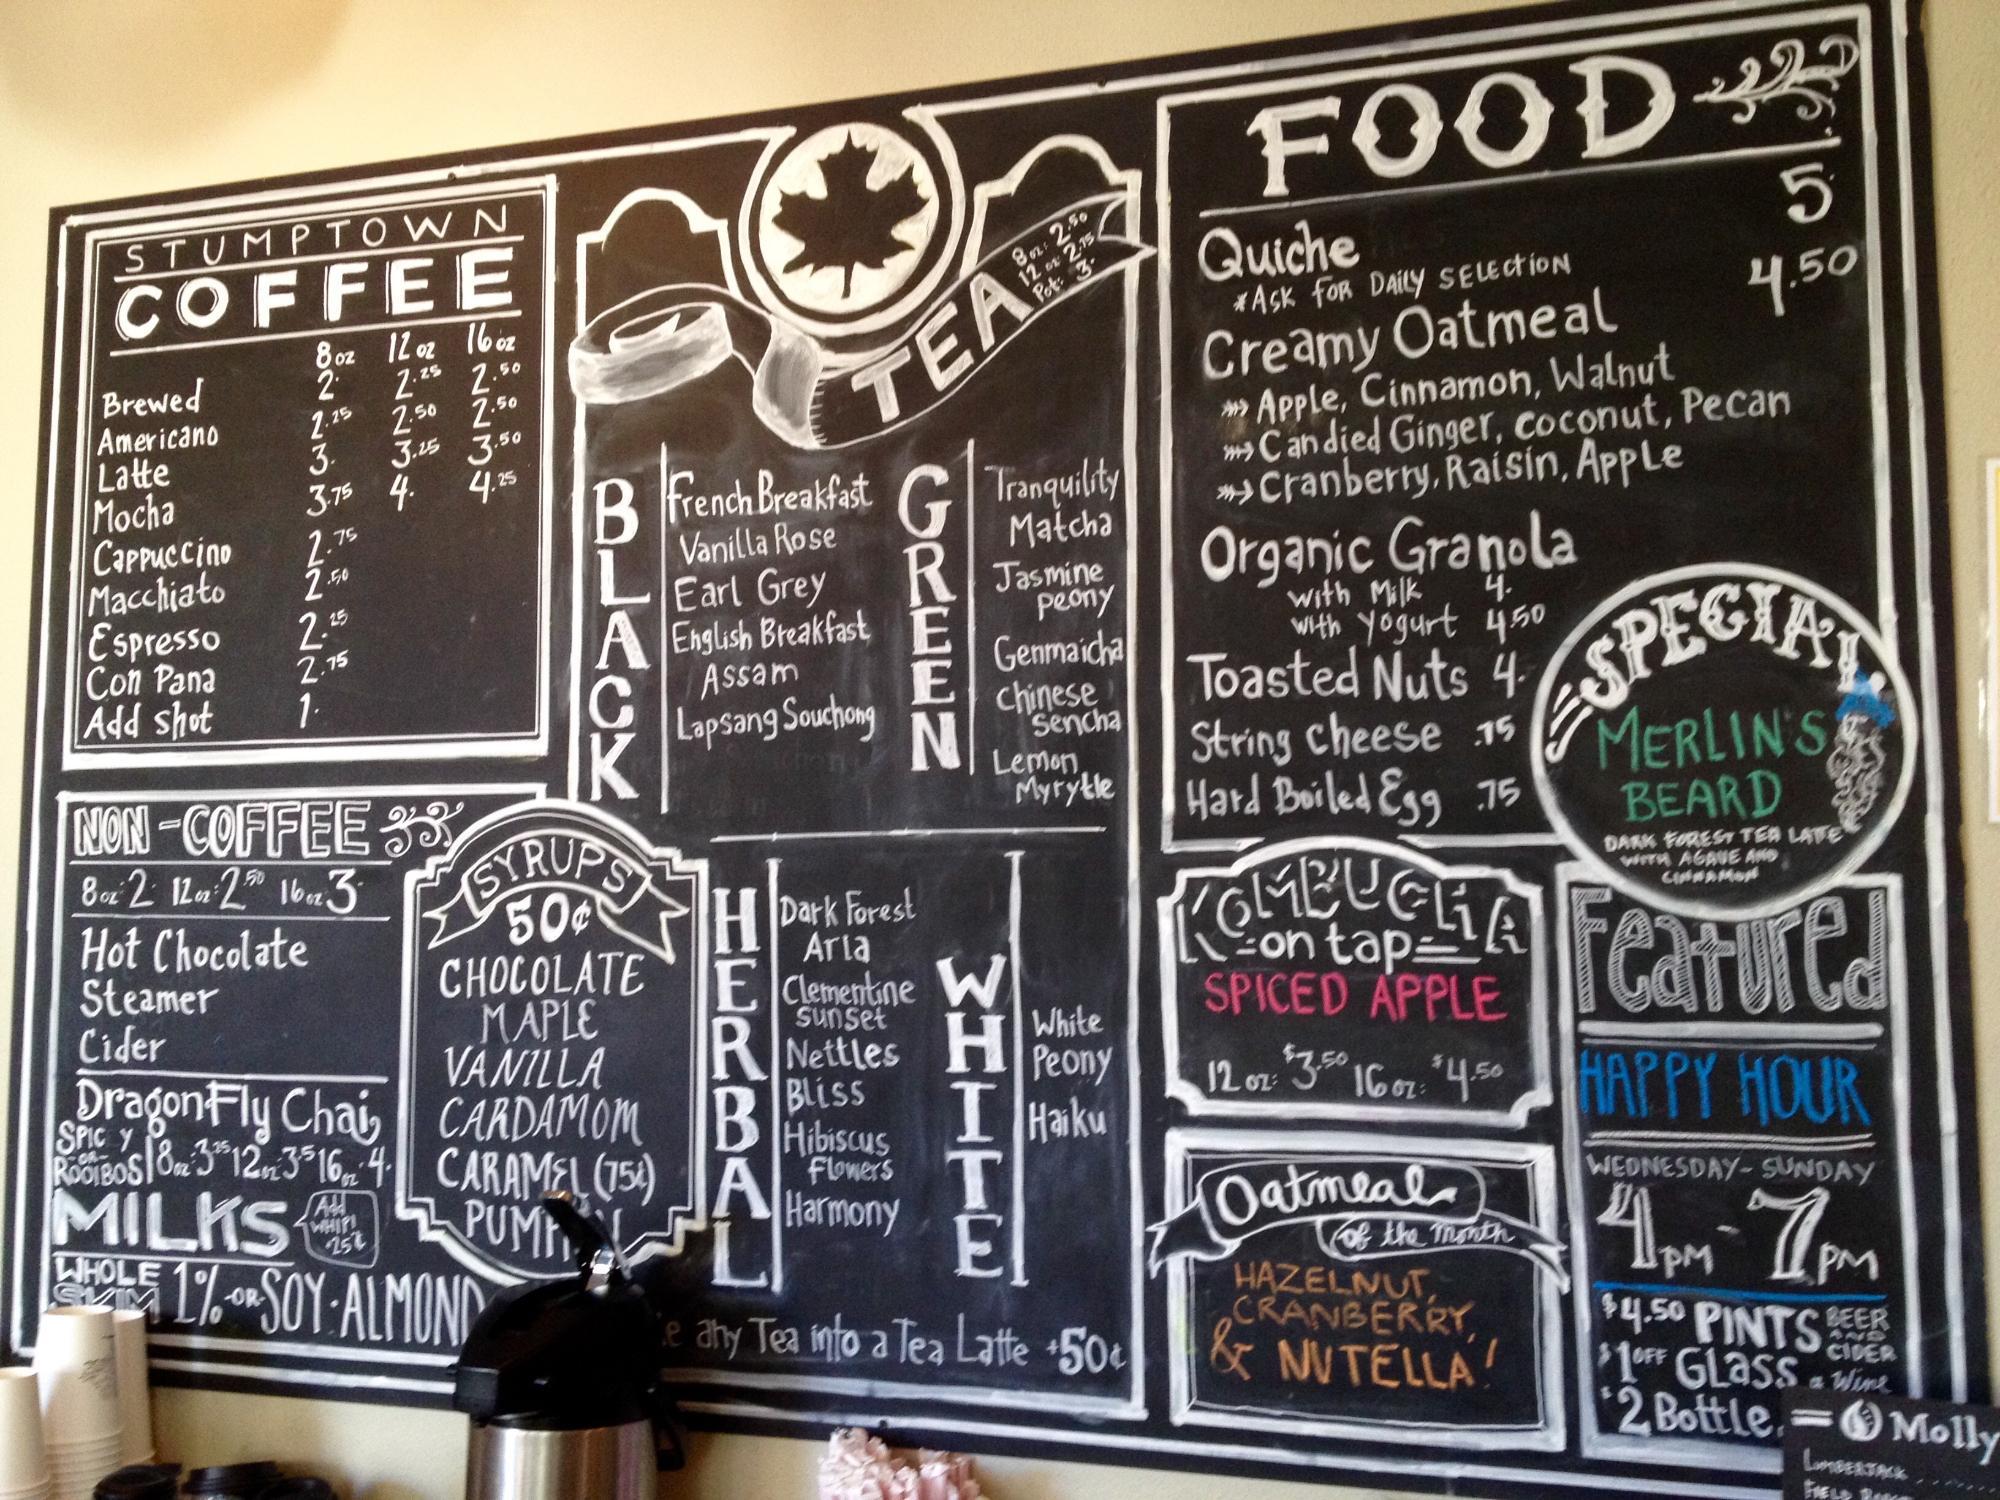 STUMPTOWN
COFFEE
8oz 12oz 16oz
Brewed 2. 2.25 2.50
Americano 2.25 2.50 2.50
Latte 3. 3.25 3.50
Mocha 3.75 4. 4.25
Cappuccino 2.75
Macchiato 2.50
Espresso 2.25
Con Pana 2.75
Add shot 1.
NON-COFFEE
8oz: 2 12oz: 2.50 16oz 3.
Hot Chocolate
Steamer
Cider
DragonFly Chai
SPICY
-OR-
ROOIBOS
8oz: 3.25 12oz: 3.5 16oz: 4.
MILKS
Add
WHIP!
.25¢
WHOLE
SKIM
1% -OR- SOY·ALMOND
SYRUPS
50¢
CHOCOLATE
MAPLE
VANILLA
CARDAMOM
CARAMEL (75¢)
TEA
8oz: 2.50
12 oz: 2.75
Pot: 3.
BLACK
French Breakfast
Vanilla Rose
Earl Grey
English Breakfast
Assam
Lapsang Souchong
GREEN
Tranquility
Matcha
Jasmine
peony
Genmaicha
Chinese
Sencha
Lemon
Myrytle
HERBAL
Dark Forest
Arla
Clementine
sunset
Nettles
Bliss
Hibiscus
Flowers
Harmony
WHITE
White
Peony
Haiku
any Tea into a Tea Latte +50¢
FOOD
Quiche 5.
*ASK FOR DAILY SELECTION
Creamy Oatmeal 4.50
Apple, Cinnamon, Walnut
Candied Ginger, Coconut, Pecan
Cranberry, Raisin, Apple
Organic Granola
with Milk 4.
with Yogurt 4.50
Toasted Nuts 4.
String Cheese .75
Hard Boiled Egg .75
SPECIAL
MERLIN'S
BEARD
DARK FOREST TEA LATTE
WITH AGAVE AND
CINNAMON
KOMBUCHA
=on tap=
SPICED APPLE
12 oz: $3.50 16 oz: $4.50
Oatmeal
of the month
HAZELNUT,
CRANBERRY,
& NUTELLA!
Featured
HAPPY HOUR
WEDNESDAY-SUNDAY
4PM - 7PM
$4.50 PINTS BEER
AND
CIDER
$1 OFF GLASS
Wine
$2 Bottle
Molly
LUMBERJACK
FIELD